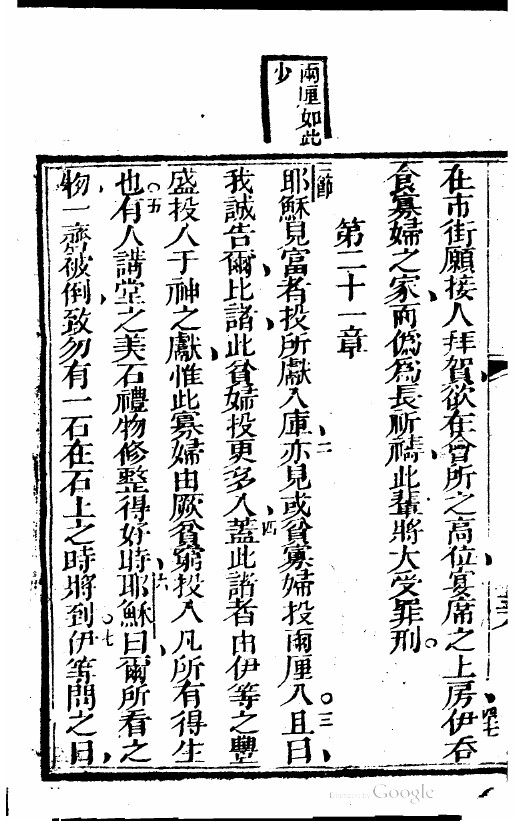 兩厘如此
少
在市街願接人拜賀欲在會所之高位宴席之上房伊吞
四七
食寡婦之家而偽為長祈禱此輩將大受罪刑
第二十一章
一節
耶穌見富者投所獻入庫亦見或貧寡婦投兩厘入且曰
二
三
我誠告爾比諸此貧婦投更多入蓋此諸者由伊等之豐
四
盛投入于神之獻惟此寡婦由厥貧窮投入凡所有得生
也有人講堂之美石禮物修整得好時耶穌曰爾所看之
五
六
物一齊被倒致勿有一石在石上之時將到伊等問之曰
七
Digitized by Google